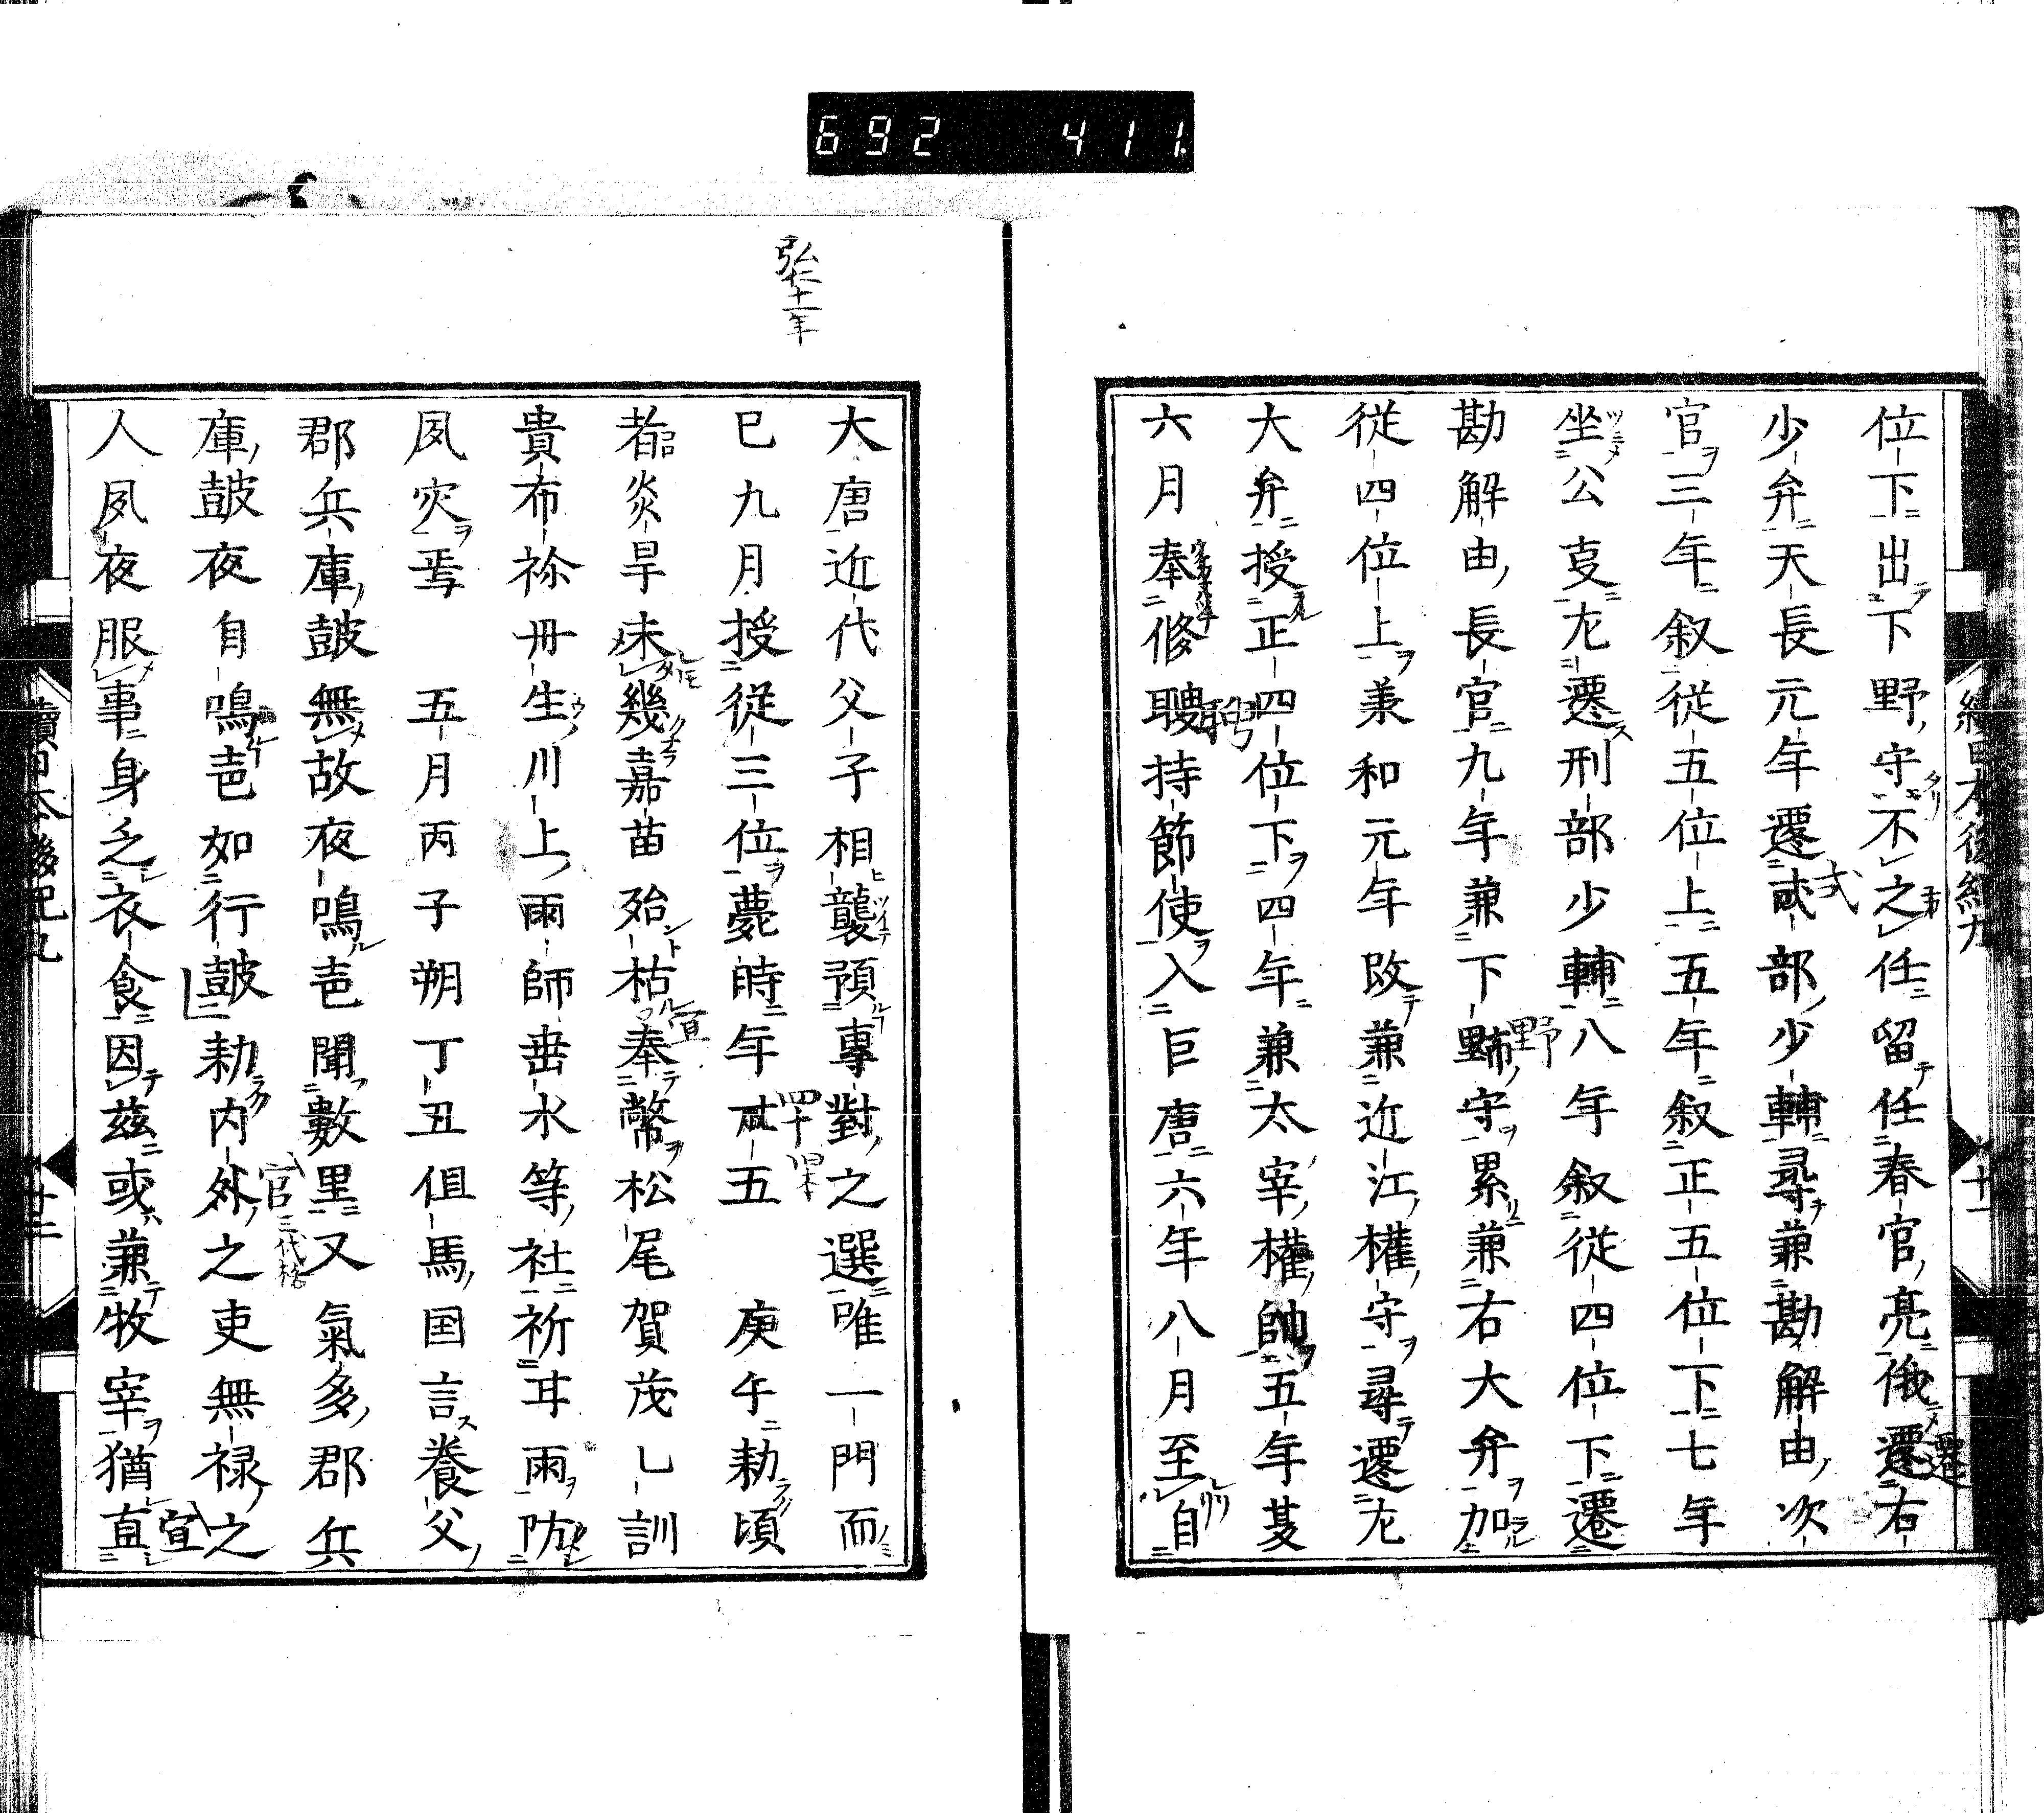 692 411.
位下出下野守不之任留任春官亮俄遷右
少弁天長元年遷貳部少輔尋兼勘解由次
官三年叙從五位上五年叙正五位下七年
坐公事左遷刑部少輔八年叙從四位下遷
勘解由長官九年兼下野守累兼右大弁加
從四位上兼和元年改兼近江權守尋遷左
大弁授正四位下四年兼太宰權帥五年夏
六月奉修聘持節使入巨唐六年八月至自
弘仁十一年
大唐近代父子相襲預專對之選唯一門而
已九月授從三位薨時年五 庚午勅頃
者炎旱未幾嘉苗殆枯奉幣松尾賀茂乙訓
貴布祢丹生川上雨師垂水等社祈甘雨防
風灾焉 五月丙子朔丁丑但馬国言養父
郡兵庫皷無故夜鳴声聞數里又氣多郡兵
庫皷夜自鳴声如行皷勅内外之吏無禄之
人夙夜服事身乏衣食因茲或兼牧宰猶直
續日本後紀九
廿二